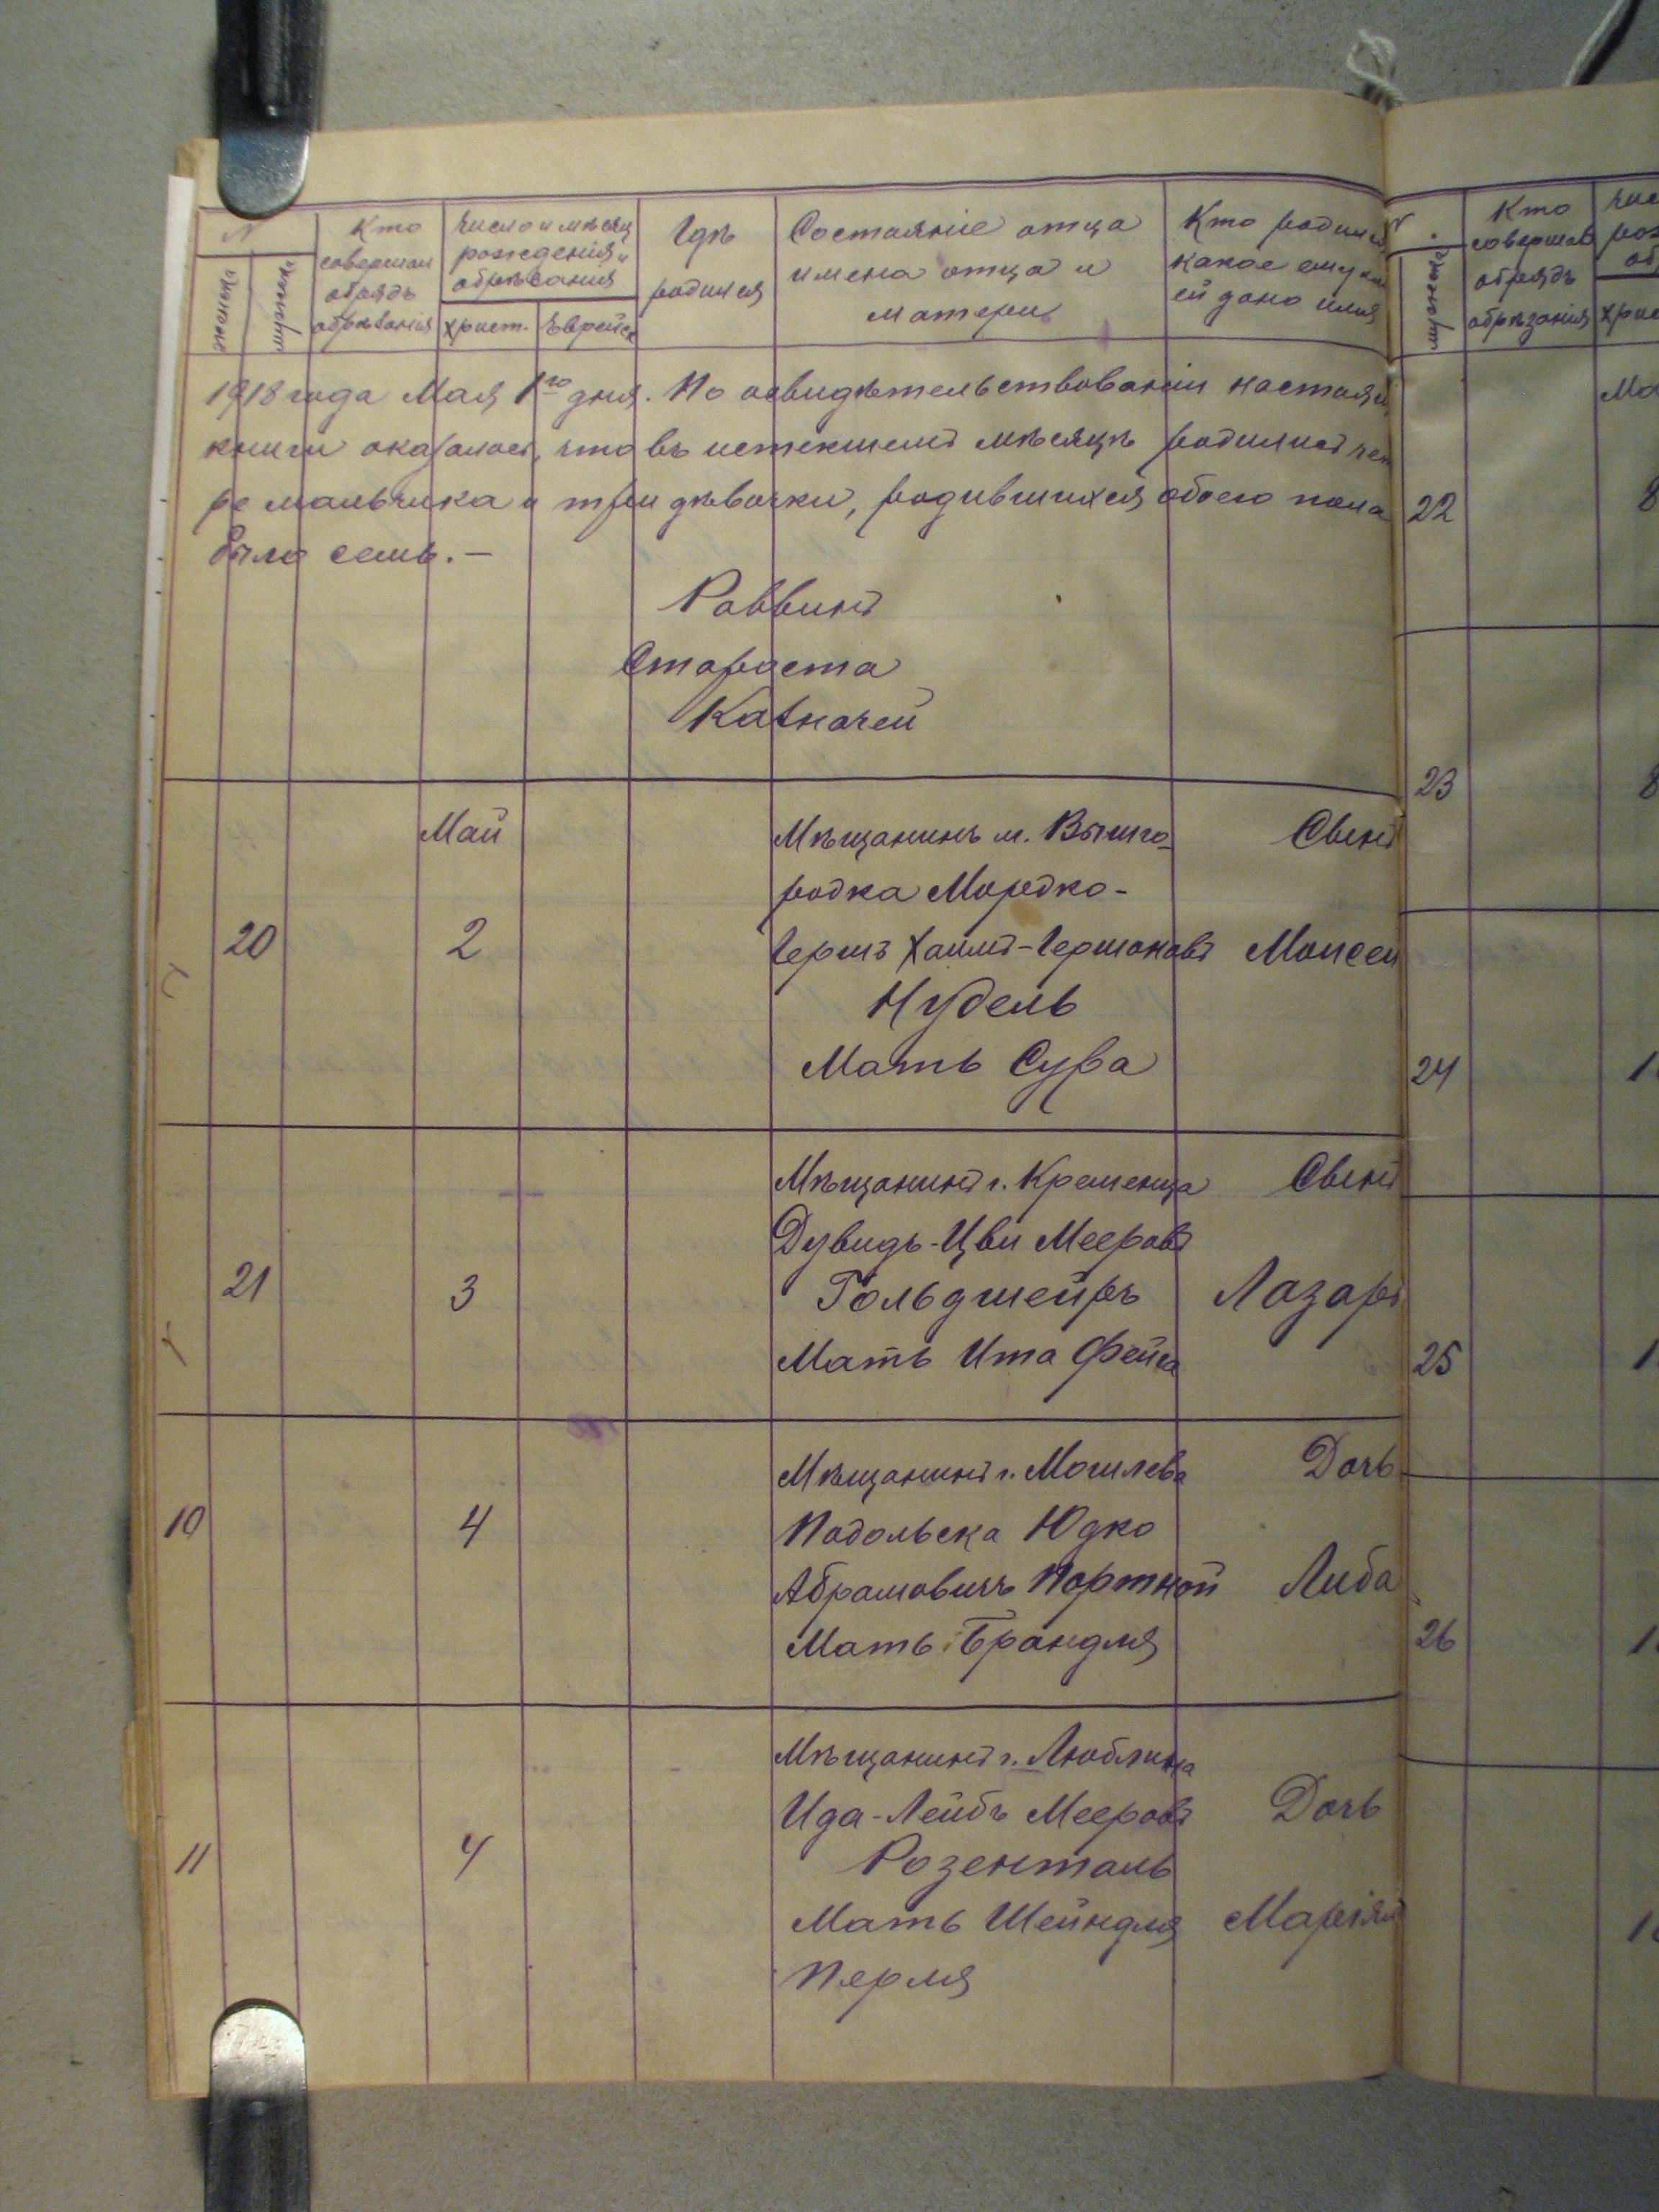 №
женска
мужска
Кто
совершал
обрядъ
обрѣзанія
Число и мѣсяц
рожденія и
обрѣзанія
Христ.
Еврейск
Гдѣ
родился
Состояніе отца
имена отца и
матери
Кто родился
какое ему или
ей дано имя
1918 года Мая 1го дня. По освидѣтельствованіи настоящ
книги оказалось, что въ истекшемъ мѣсяцѣ родилисъ чет
ре мальчика и три дѣвочки, родившихся обоего пола
было семь. —
Раввинъ
Староста
Казначей
Май
20
2
Мѣщанинъ м. Вышго-
родка Мордко-
Гершъ Хаимъ-Гершоновъ
Нудель
Мать Сура
Сынъ
Моисей
21
3
Мѣщанинъ г. Кременца
Дувидъ-Цви Мееровъ
Гольдшейръ
Мать Ита Фейга
Сынъ
Лазаръ
10
4
Мѣщанинъ г. Могилева
Подольска Юдко
Абрамовичъ Портной
Мать Брандля
Дочь
Либа
11
4
Мѣщанинъ г. Люблина
Ида-Лейбъ Мееровъ
Розенталь
Мать Шейндля
Перля
Дочь
Маріям
Кто
совершал
обрядъ
обрѣзанія
22
8
23
8
24
25
26